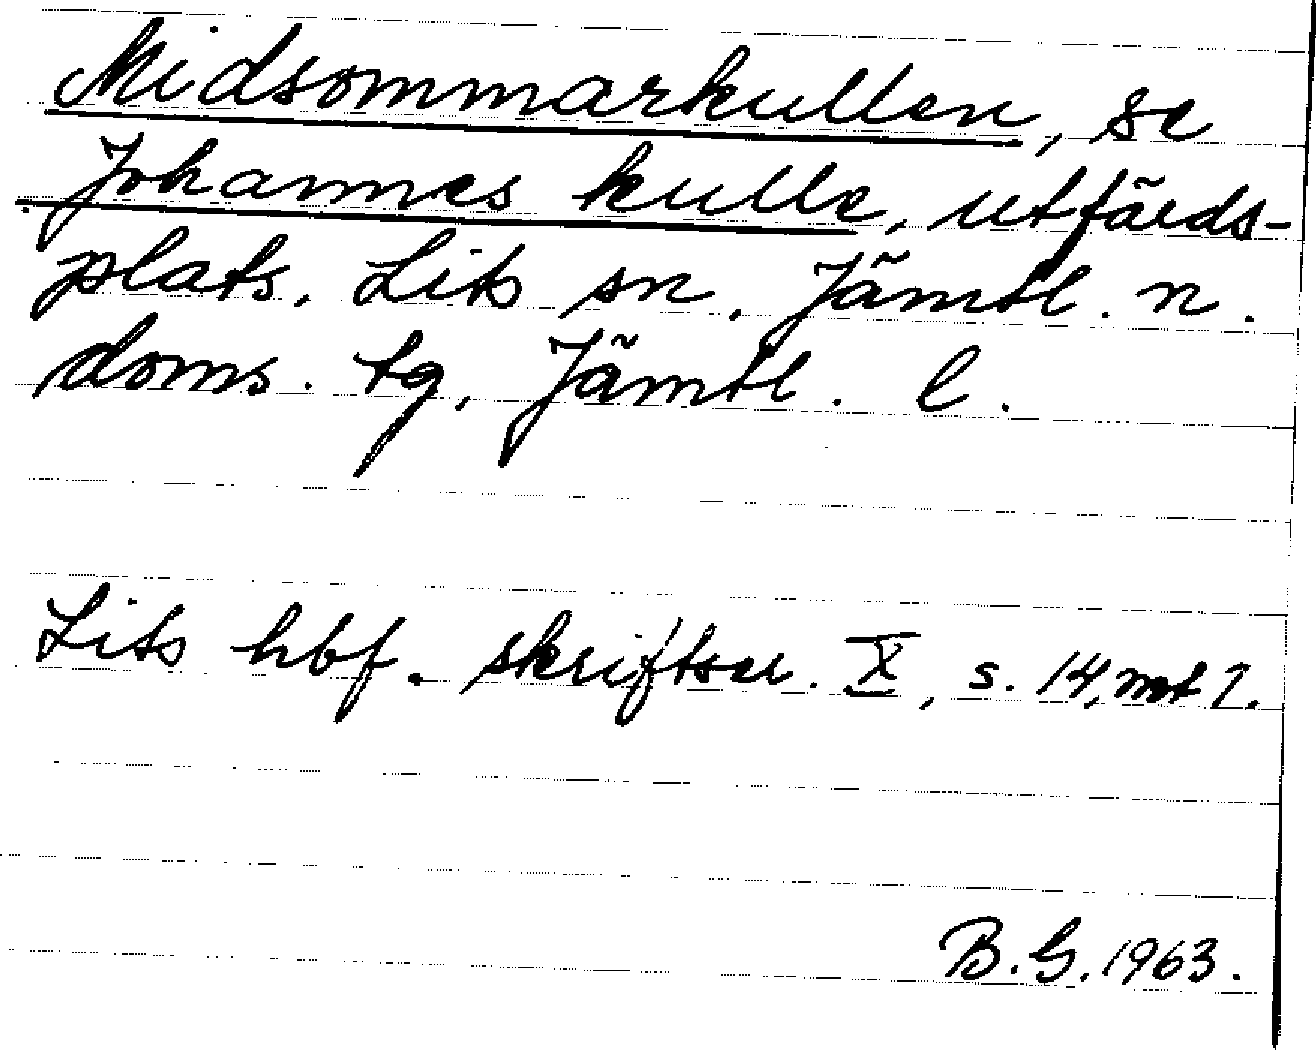 Midsommarkullen, se
Johannes kulle, utfärds-
plats, Lits sn, Jämtl. n.
doms. tg, Jämtl. l.
Lits hbf. skriftser. X, s. 14, not 7.
B.G. 1963.